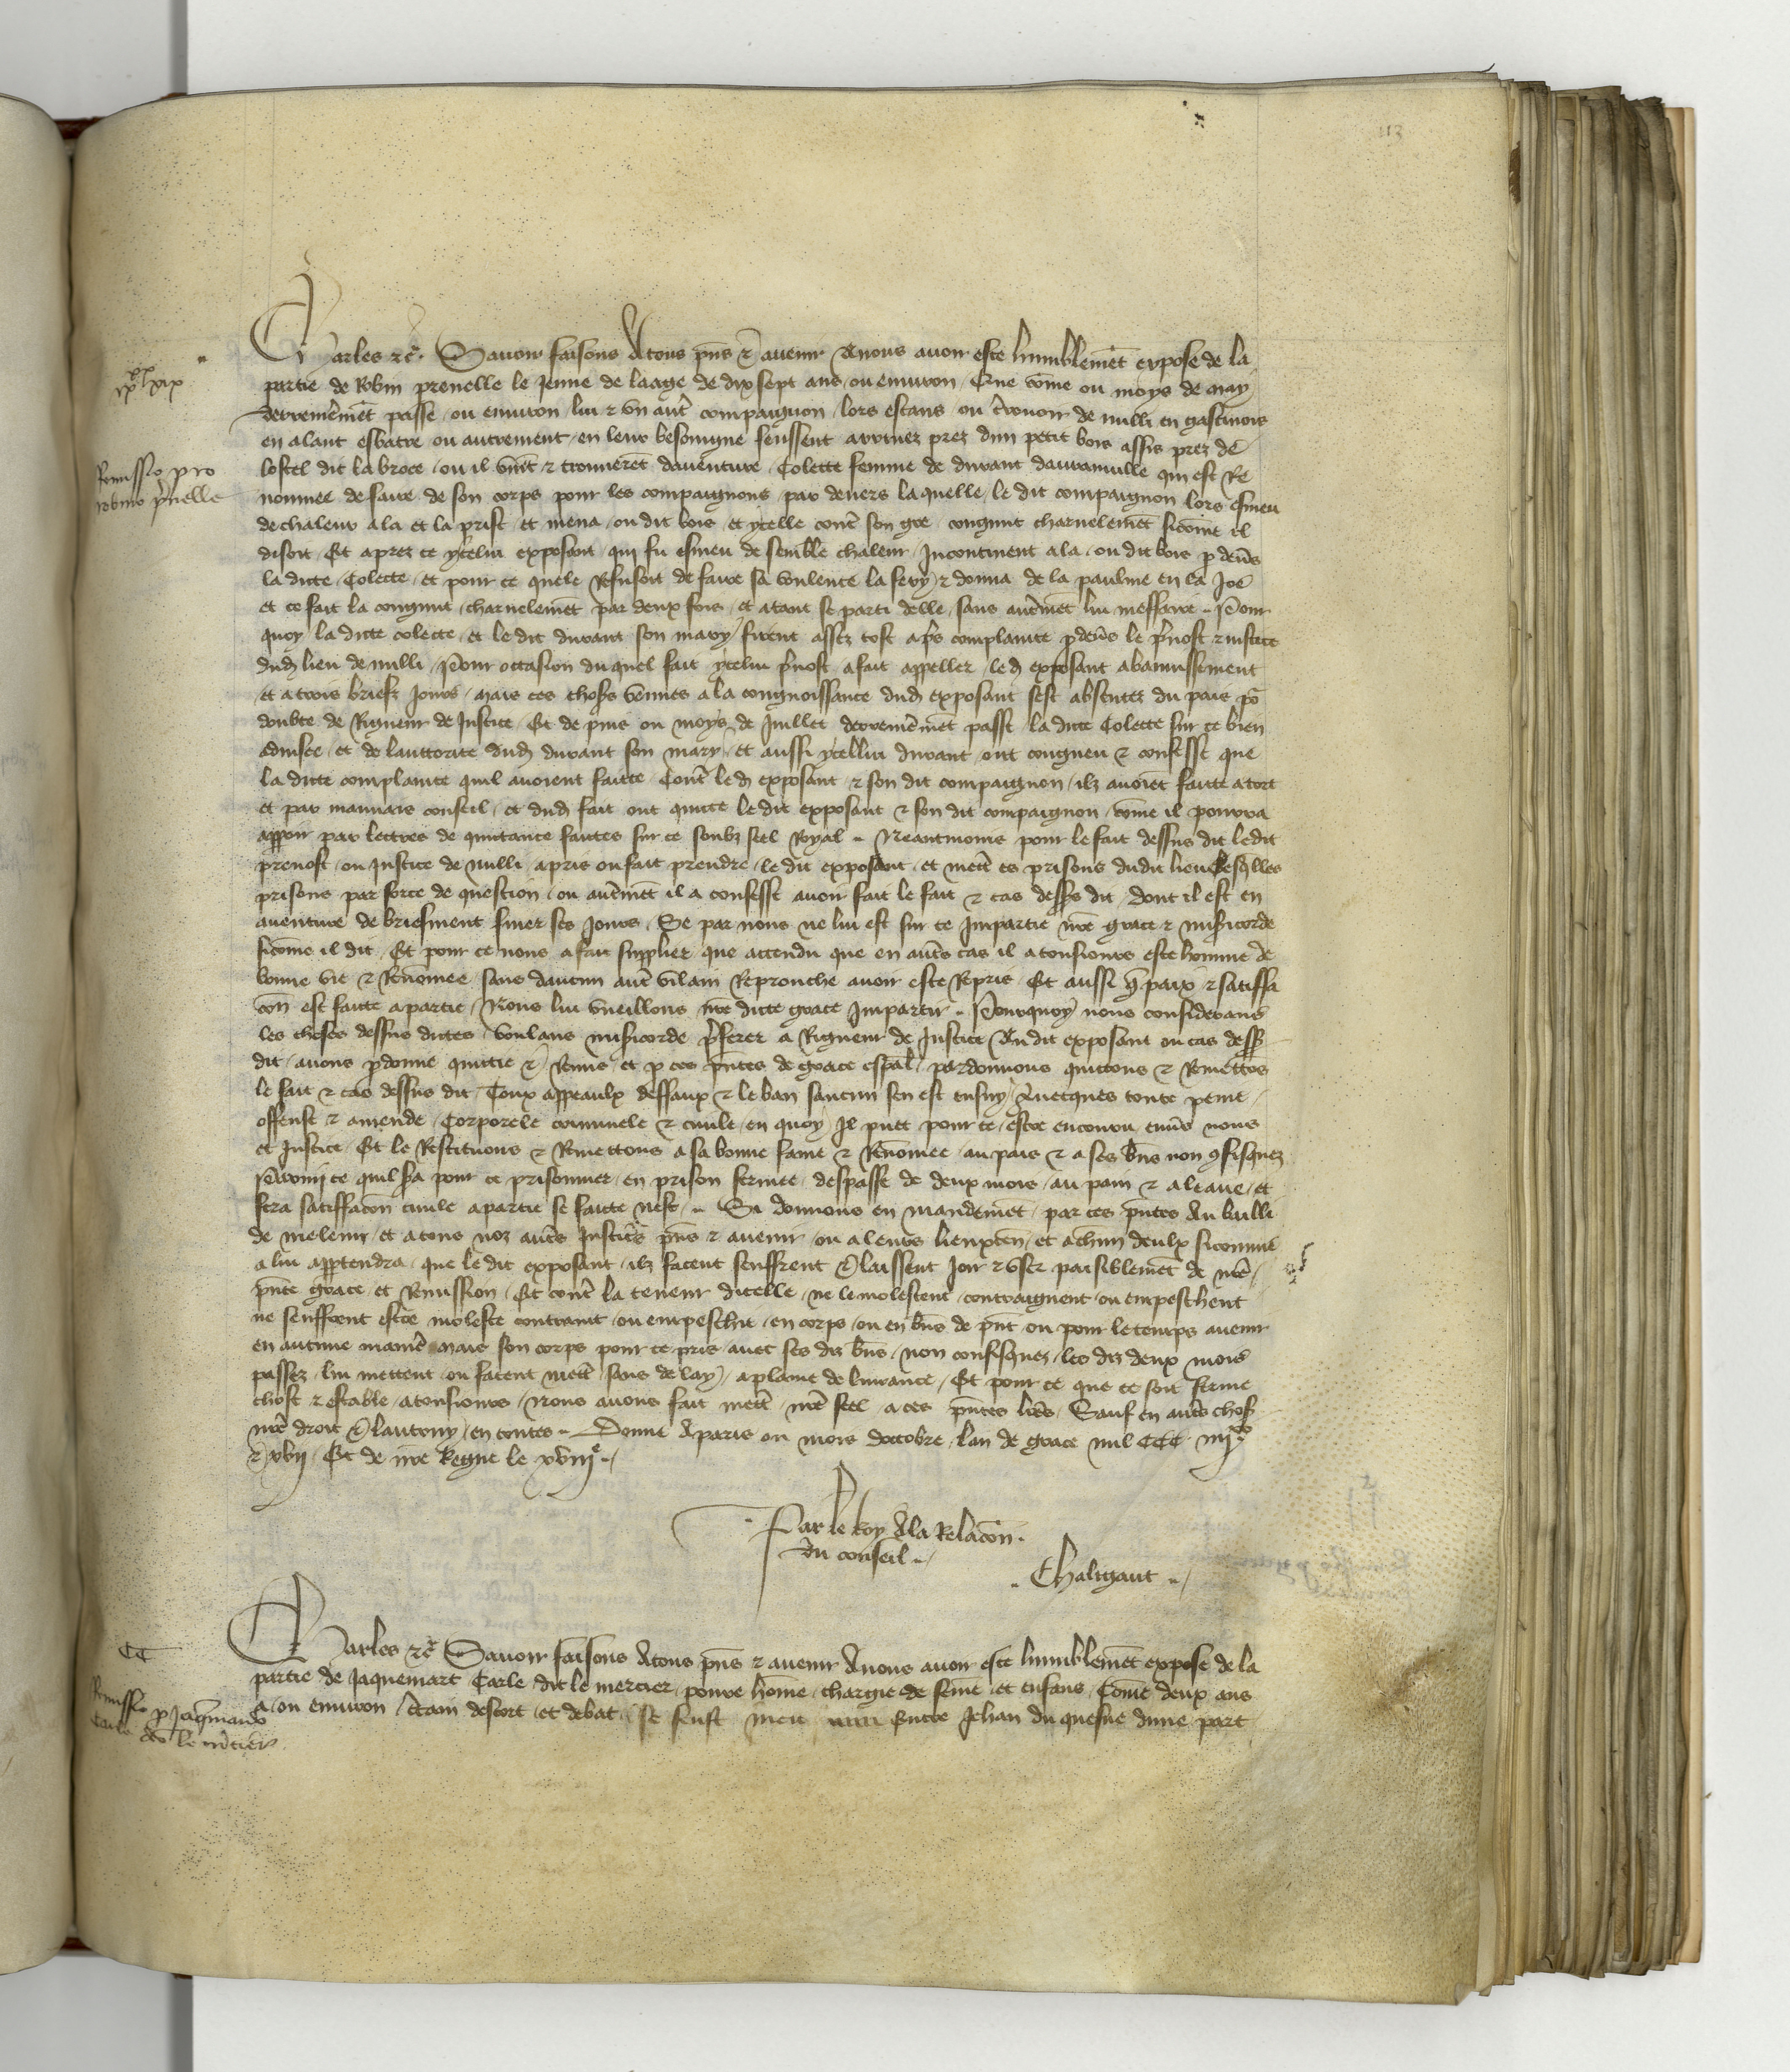 113
Charles etc. Savoir faisons Atous pñs et avenir Anous avoir este humblemēt expose de la
ix xx xix
partie de Robin prenelle le Jenne de laage de dix sept ans ou environ Que cōme ou moys de may
derrenieremēt passe ou environ lui et un autr̃ compaignon lors estans ou terrouoir de milli en gastinois
en alant esbatre ou autrement en leur besoingne feussent arrivez prez dun petit bois assis prez de
Remissio pro
robino p̃nelle
lostel dit la broce ou il vindr̃t et trouverēt daventure Colette femme de durant dauranville qui est Re
nommee de faire de son corps pour les compaignons par devers la quelle le dit compaignon lors esmeu
de chaleur ala et la prist et mena ou dit bois et ycelle contr̃ son gre congnut charnelemēt sicōme il
disoit Et aprez ce ycelui exposant qui fu esmeu de semble chaleur Incontinent ala ou dit bois p devs̃
la dicte Colette et pour ce quele Refusoit de faire sa voulente la fery et donna de la paulme en la Joe
et ce fait la congnut charnelemēt par deux fois et atant se parti delle sans autr̃mēt lui meffaire Pour
quoy la dicte colette et le dit durant son mary firent assez tost apr̃s complainte p devs̃ le p̃vost et justice
dud lieu de milli Pour occasion du quel fait ycelui p̃vost a fait appeller le d exposant abanissement
et a trois briefz Jours mais ces choses venues a la congnoissance dud exposant sest absentez du pais po^r
doubte de Rigueur de Justice Et de puis ou moys de Juillet derreniēmēt passe la dicte Colette sur ce bien
advisee et de lauttorite dud durant son mary et aussi ycellui durant ont congneu et confesse que
la dicte complainte quil avoient faicte Contr̃ le d exposant et son dit compaignon ilz avoiēt faicte atort
et par mauvais conseil et dud fait ont quicte le dit exposant et son dit compaignon cōme il pourra
apparoir par lectres de quictance faictes sur ce soubz seel Royal Neantmoins pour le fait dessus dit ledit
prevost ou Justice de milli a pris ou fait prendre le dit exposant et mettr̃ es prisons dudit lieu Esq̃lles
prisons par force de question ou autr̃mēt il a confesse avoir fait le fait et cas dess̃s dit dont il est en
aventure de briefment finer ses Jours Se par nous ne lui est sur ce Impartie nr̃e grace et mis̃icorde
sicōme il dit Et pour ce nous a fait supplier que attendu que en autr̃s cas il a tousiours este homme de
bonne vie et Renōmee sans daucun autr̃ vilain Reprouche avoir este Repris Et aussi q̃ paix et satiffa
cōn est faicte a partie Nous lui vueillons nr̃e dicte grace Impartir Pourquoy nous considerans
les choses dessus dictes voulans mis̃icorde p̃ferer a Rigueur de Justice Au dit exposant ou cas dess̃
dit avons pdonne quictie et Remis et p ces p̃ntes de grace esp̃al pardonnons quictons et Remettōs
le fait et cas dessus dit Toux appeaulx deffaux et le ban saucun sen est ensuy Avecques toute peine
offense et amende Corporele criminele et civile en quoy Il puet pour ce estre encouru envs̃ nous
et Justice Et le Restituons et Remettons a sa bonne fame et Renōmee au pais et a ses biens non 9fisquez
Parmi ce quil s̃a pour ce prisonnier en prison fermee lespasse de deux mois au pain et a leaue et
fera satiffacōn civile a partie se faicte nest Si donnons en mandemēt par ces p̃ntes Au bailli
de meleun et a tous noz autr̃s Justicr̃s pñs et avenir ou a leurs lieuxten̄ et achūn deulx sicomme
a lui appartendra que le dit exposant ilz facent seuffrent et laissent Joir et user paisiblemēt de nr̃e
p̃nte grace et Remission Et contr̃ la teneur dicelle ne le molestent contraignent ou empeschent
ne seuffrent estre moleste contraint ou empeschie en corps ou en biens de p̃nt ou pour le temps avenir
en aucune manie᷑ mais son corps pour ce pris avec ses diz biens non confisquez les diz deux mois
passez lui mettent ou facent mettr̃ sans delay a plaine delivrance Et pour ce que ce soit ferme
chose et estable a tousiours Nous avons fait mettr̃ nr̃e seel a ces p̃ntes lr̃es Sauf en autr̃s chos̃
nr̃e droit et lautruy en toutes Donne Aparis ou mois doctobre lan de grace mil CCC iiii^xx
et xvii Et de nr̃e Regne le xviii^e
Par le Roy Ala Relacōn
du conseil
Chaligaut
CC
Charles etc Savoir faisons Atous pñs et avenir Anous avoir este humblemēt expose de la
partie de Jaquemart Carle dit le mercier povre hōme chargie de fēme et enfans Cōme deux ans
Remissio p Jaq̃marto
Carle dco le mc̃ier
a ou environ c̃tain descort et debat se feust meu Entre Jehan du quesne dune part